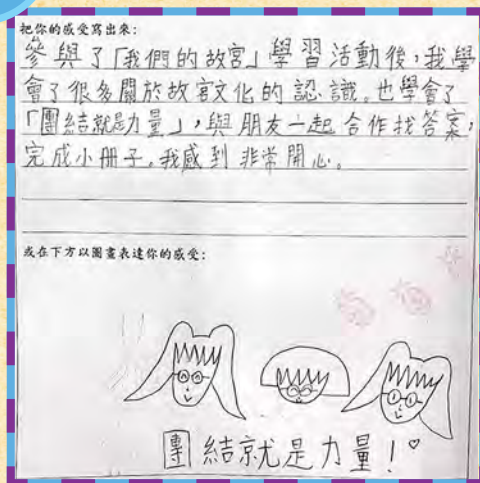 把你的感受寫出來：
參與了「我們的故宮」學習活動後，我學
會了很多關於故宮文化的認識。也學會了
「團結就是力量」，與朋友一起合作找答案，
完成小冊子。我感到非常開心。
或在下方以圖畫表達你的感受：
團結就是力量！♡